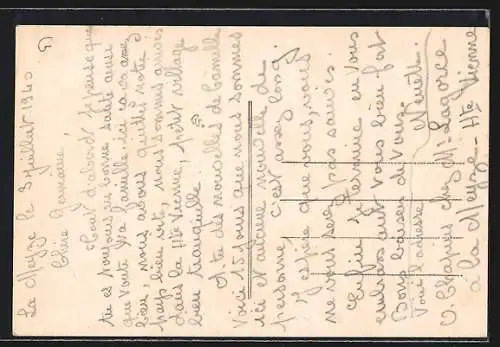 La Meyze le 3 juillet 1940
Chère Germaine,
Tout d'abord je pense que
tu es toujours en bonne santé ainsi
que toute ta famille ici ça va assez
bien, nous avons quittés notre
pays bien vite, nous sommes arrivés
dans la Hte Vienne, petit village
bien tranquille.
A tu des nouvelles de Camille
Voici 15 jours que nous sommes
ici et aucune nouvelle de
personne c'est assez long.
J'espère que vous, vous
ne vous serez pas sauvés.
Enfin je termine en vous
embrassant tous bien fort
Bons baisers de tous.
Ginette
Voici l'adresse
V. Chapuis chez Mr Lagorce
à la Meyze - Hte Vienne